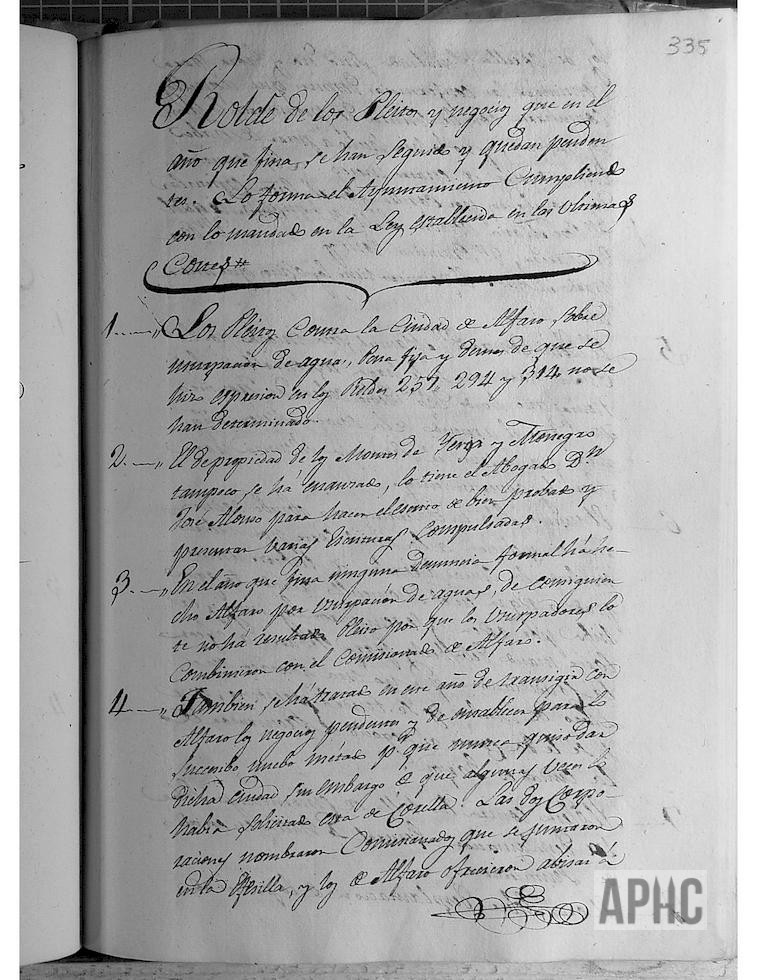 335
Rolde de los Pleitos y negocios que en el
año que fina, se han seguido y quedan pendien
tes. Lo forma el Ayuntamiento Cumpliendo
con lo mandado en la Ley establecida en las Ultimas
Cortes
1 Los Pleitos Contra la Ciudad de Alfaro sobre
usurpacion de aguas, Pena fixa y demas de que se
hizo expresion en los Roldes 257, 294 y 314 no se
han determinado.
2 El de propiedad de los Montes de Yerga y Monegro
tampoco se há enaurado, lo tiene el Abogado Dn
José Alonso para hacer el escrito de bien probado y
presentar varias Escrituras Compulsadas.
3 En el año que fina ninguna denuncia formal há he-
cho Alfaro por Usurpación de aguas, de Consiguien
te no há resultado Pleito por que los Usurpadores lo
Combinieron con el Comisionado de Alfaro.
4 Tambien se há tratado en este año de transigir con
Alfaro los negocios pendientes y de establecer para lo
succesibo nuebo metodo pr. que nunca quiso dar
dicha Ciudad, sin embargo de que algunas veces lo
había solicitado esta de Corella. Las dos Corpo-
raciones nombraron Comisionados que se juntaron
en la y los de Alfaro ofrecieron abisar á
APHC